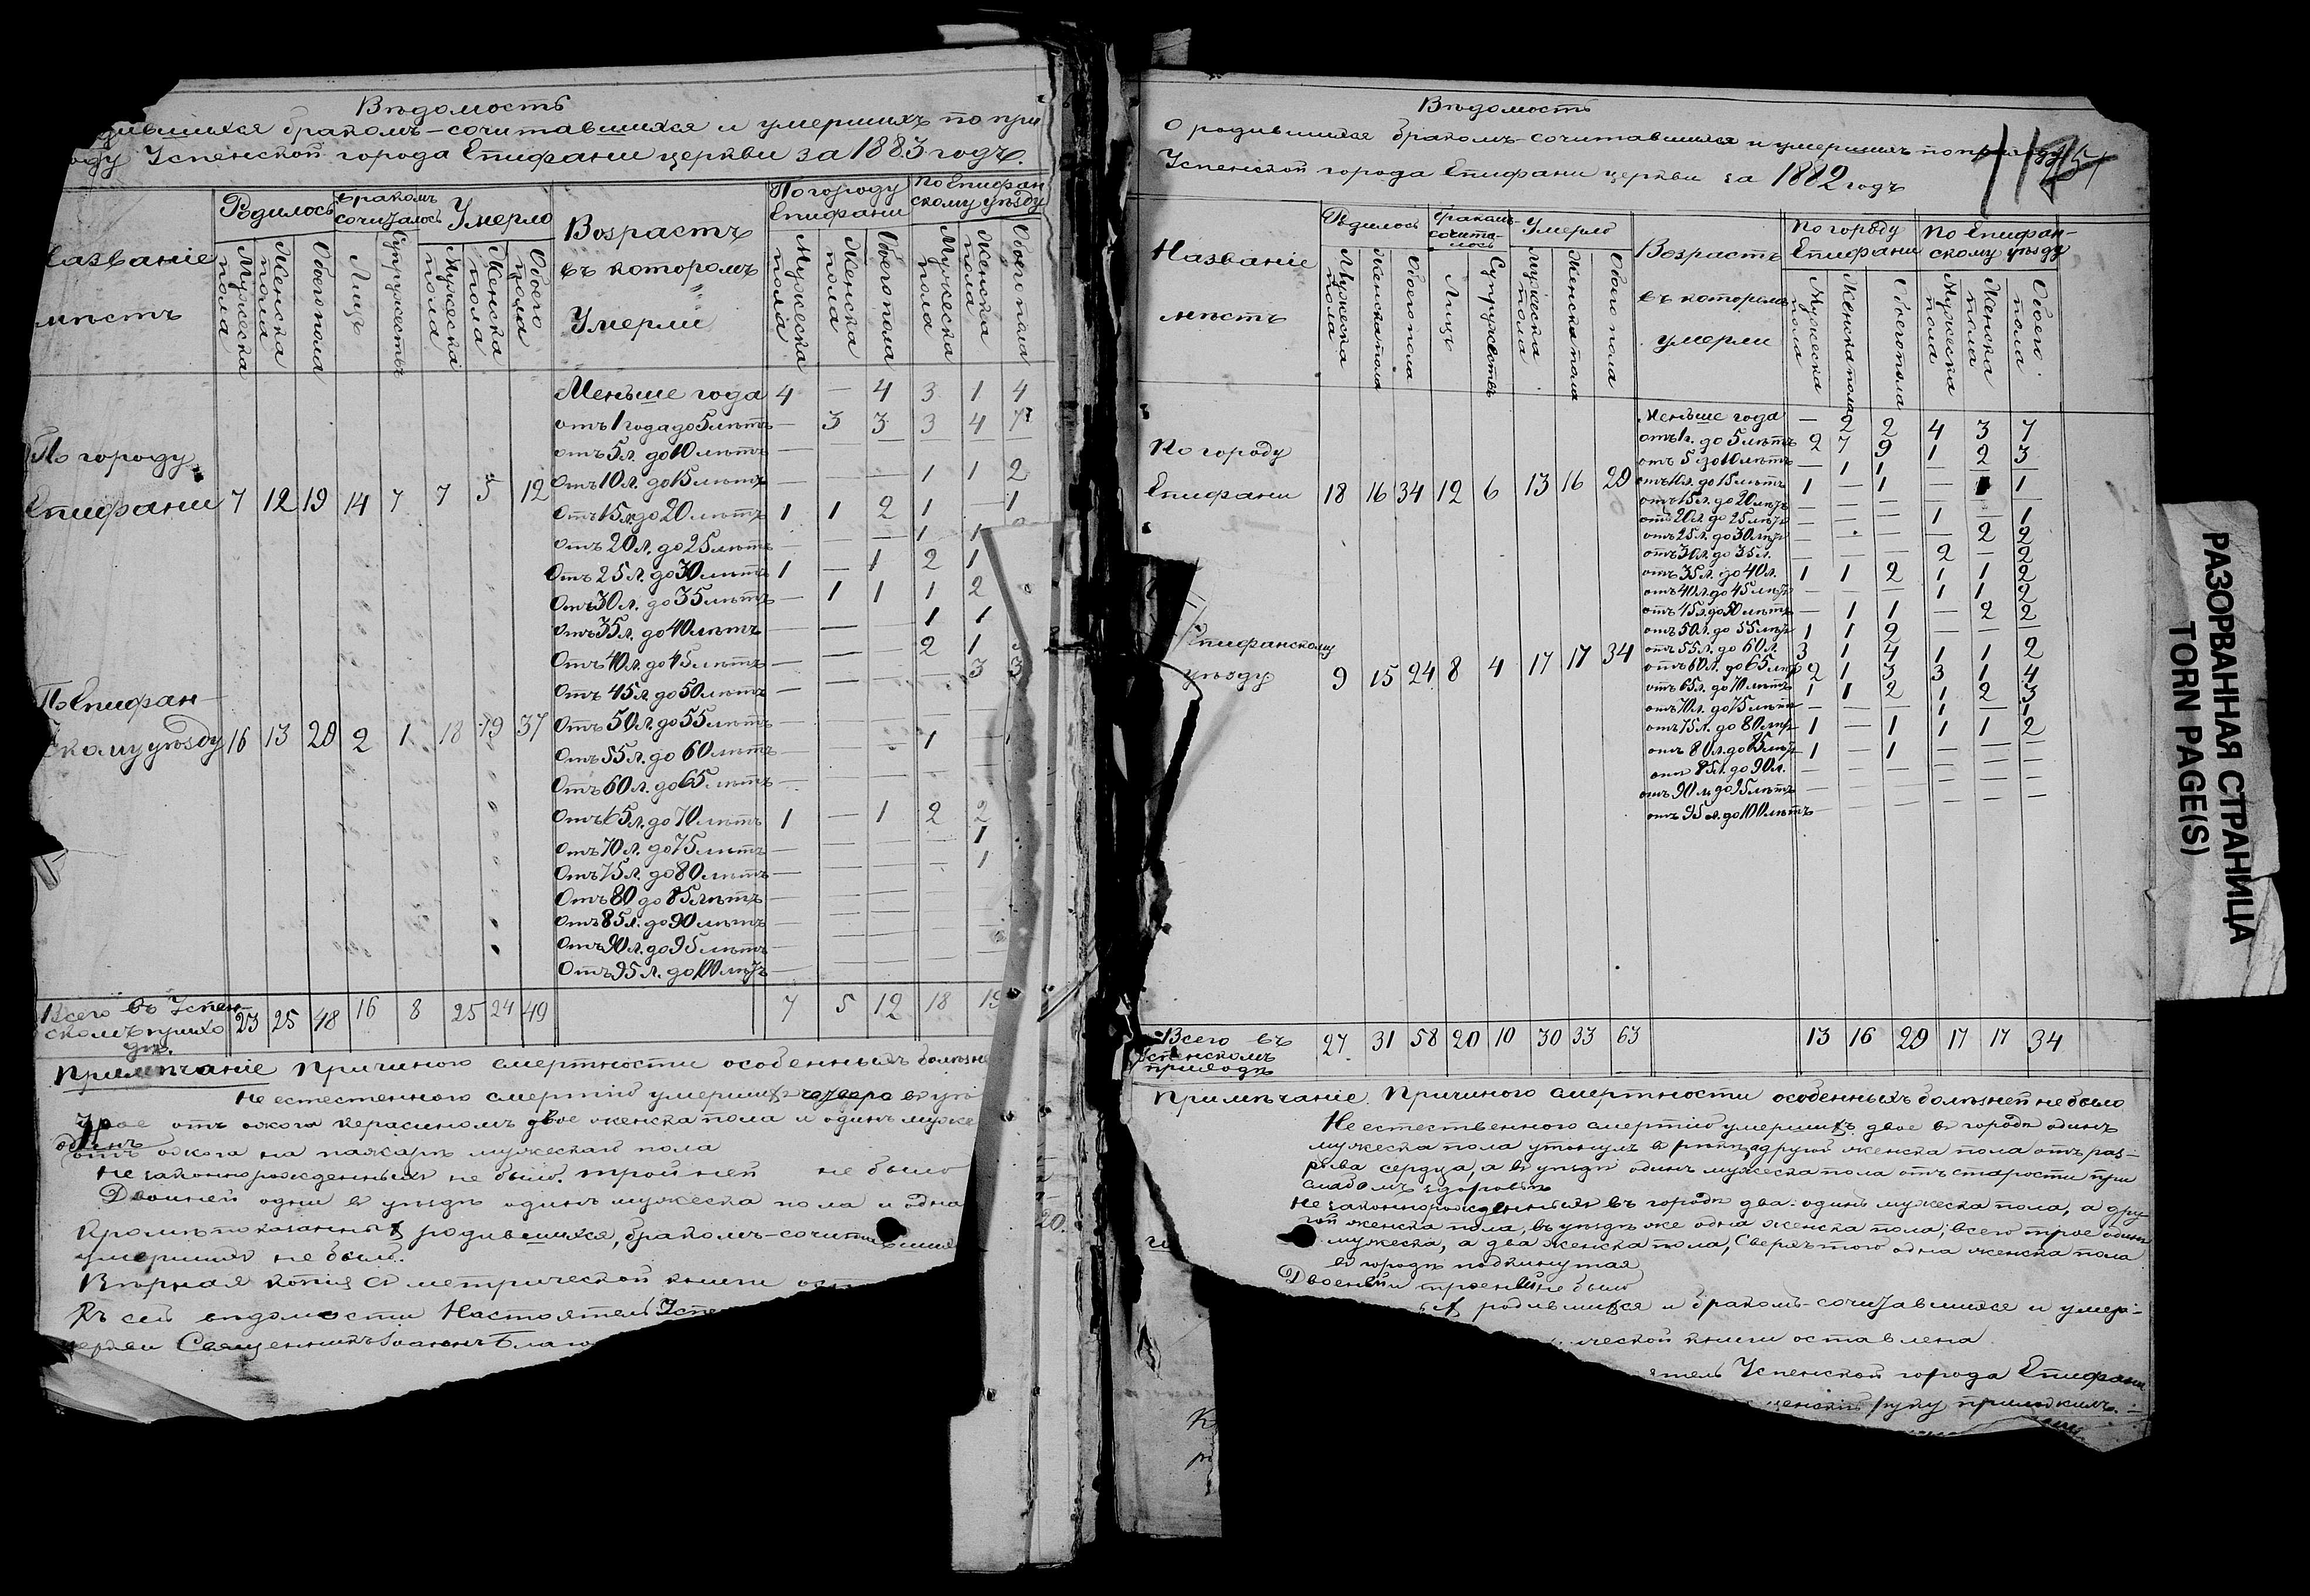 Вѣдомость
родившихся бракомъ-сочитавшихся и умершихъ по при
ходу Успенской города Епифани церкви за 1883 годъ.
Названіе мѣстъ
Родилось
Бракомъ сочиталось
Умерло
Возрастъ въ которомъ умерли
По городу Епифани
По Епифанскому уѣзду
Мужеска пола
Женска пола
Обоего пола
Лицъ
Супружествъ
Мужеска пола
Женска пола
Обоего пола
Мужеска пола
Женска пола
Обоего пола
Мужеска пола
Женска пола
Обоего пола
Меньше года 4 — 4 3 1 4
отъ 1 года до 5 лѣтъ — 3 3 3 4 7
отъ 5 л. до 10 лѣтъ — — — — — —
Отъ 10 л. до 15 лѣтъ — — — 1 1 2
Отъ 15 л. до 20 лѣтъ 1 1 2 1 — 1
Отъ 20 л. до 25 лѣтъ — — — 1 1
Отъ 25 л. до 30 лѣтъ 1 — 1 2 1
Отъ 30 л. до 35 лѣтъ — 1 1 1 2
Отъ 35 л. до 40 лѣтъ — — — 1 1
Отъ 40 л. до 45 лѣтъ — — — 2 1 3
Отъ 45 л. до 50 лѣтъ — — — — 3 3
Отъ 50 л. до 55 лѣтъ — — — — —
Отъ 55 л. до 60 лѣтъ — — — 1 —
Отъ 60 л. до 65 лѣтъ — — — — —
Отъ 65 л. до 70 лѣтъ 1 — 1 2 2
Отъ 70 л. до 75 лѣтъ — — — — 1
Отъ 75 л. до 80 лѣтъ — — — — 1
Отъ 80 до 85 лѣтъ — — — — —
Отъ 85 л. до 90 лѣтъ — — — — —
Отъ 90 л. до 95 лѣтъ — — — — —
Отъ 95 л. до 100 лѣтъ — — — — —
По городу
Епифани 7 12 19 14 7 7 5 12
По Епифан-
скому уѣзду 16 13 29 2 1 18 19 37
Всего въ Успен
скомъ прихо
дѣ. 23 25 48 16 8 25 24 49 7 5 12 18 19
Примѣчаніе Причиною смертности особенныхъ болѣзне
Не естественною смертію умершихъ четверо въ уѣз
Трое отъ ожога керасиномъ двое женска пола и одинъ муже
одинъ
отъ ожога на пожарѣ мужескаго пола
Не законнорожденныхъ не было. тройней не было
Двойней одни въ уѣздѣ одинъ мужеска пола и одна
Кромѣ показанныхъ родившихся, бракомъ-сочитавшихся
умершихъ не было.
Вѣрная копія съ метрической книги ост
Къ сей вѣдомости Настоятель Успе
церкви Священникъ Іоаннъ Благо
20.
Вѣдомость
О родившихся бракомъ-сочитавшихся и умершихъ по приходу
Успенской города Епифани церкви за 1882 годъ
Названіе мѣстъ
Родилось
Бракомъ сочита-лось
Умерло
Возрастъ въ которомъ умерли
По городу Епифани
По Епифан-скому уѣзду
Мужеска пола
Женска пола
Обоего пола
Лицъ
Супружествъ
Мужеска пола
Женска пола
Обоего пола
Мужеска пола
Женска пола
Обоего пола
Мужеска пола
Женска пола
Обоего пола
Меньше года — 2 2 4 3 7
отъ 1 г. до 5 лѣтъ 2 7 9 1 2 3
отъ 5 до 10 лѣтъ — 1 1 — — —
отъ 10 л. до 15 лѣтъ 1 — 1 — 1 1
отъ 15 л. до 20 лѣтъ — — — — — —
отъ 20 л. до 25 лѣтъ — — — 1 — 1
отъ 25 л. до 30 лѣтъ — — — — 2 2
отъ 30 л. до 35 л. — — — 2 — 2
отъ 35 л. до 40 л. 1 1 2 1 1 2
отъ 40 л. до 45 лѣтъ — — — 1 1 2
отъ 45 л. до 50 лѣтъ — 1 1 — 2 2
отъ 50 л. до 55 лѣтъ 1 1 2 — — —
отъ 55 л. до 60 л. 3 1 4 1 1 2
отъ 60 л. до 65 лѣтъ 2 1 3 3 1 4
отъ 65 л. до 70 лѣтъ 1 1 2 1 2 3
отъ 70 л. до 75 лѣтъ — — — 1 — 1
отъ 75 л. до 80 лѣтъ 1 — 1 1 1 2
отъ 80 л. до 85 лѣтъ 1 — 1 — — —
отъ 85 л. до 90 л. — — — — — —
отъ 90 л. до 95 лѣтъ — — — — — —
отъ 95 л. до 100 лѣтъ — — — — —
По городу
Епифани 18 16 34 12 6 13 16 29
Епифанскому
уѣзду 9 15 24 8 4 17 17 34
Всего въ
Успенскомъ
приходѣ 27 31 58 20 10 30 33 63 13 16 29 17 17 34
Примѣчаніе. Причиною смертности особенныхъ болѣзней не было
Не естественною смертію умершихъ двое въ городѣ одинъ
мужеска пола утонулъ въ рѣкѣ, а другой женска пола отъ раз-
рыва сердца, а въ уѣздѣ одинъ мужеска пола отъ старости при
слабомъ здоровьѣ
Не законнорожденныхъ въ городѣ два: одинъ мужеска пола, а дру
гой женска пола, въ уѣздѣ же одна женска пола; всего трое одинъ
мужеска, а два женска пола, Сверхъ того одна женска пола
въ городѣ подкинутая
Двоенъ и троенъ не было
родившихся и бракомъ-сочитавшихся и умер-
ической книги оставлена
тель Успенской города Епифани
щенникъ руку приложилъ.
РАЗОРВАННАЯ СТРАНИЦА
TORN PAGE(S)